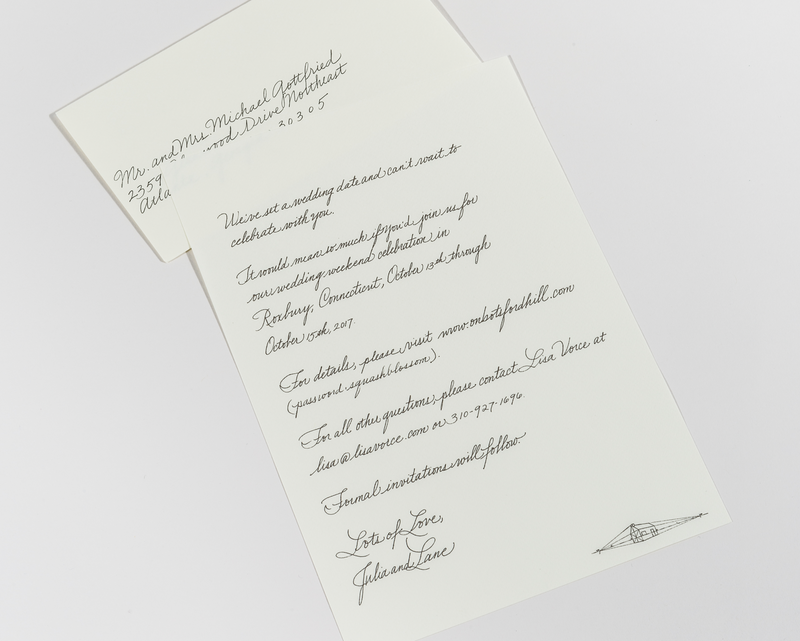 Mr. and Mrs. Michael Gottfried
2359 wood Drive Northeast
Atla 20305
We've set a wedding date and can't wait to
celebrate with you.
It would mean so much if you'd join us for
our wedding weekend celebration in
Roxbury, Connecticut, October 13th through
October 15th, 2017.
For details, please visit www.onbotsfordhill.com
(password squashblossom).
For all other questions, please contact Lisa Vorce at
lisa@lisavorce.com or 310-927-1696.
Formal invitations will follow.
Lots of Love,
Julia and Lane